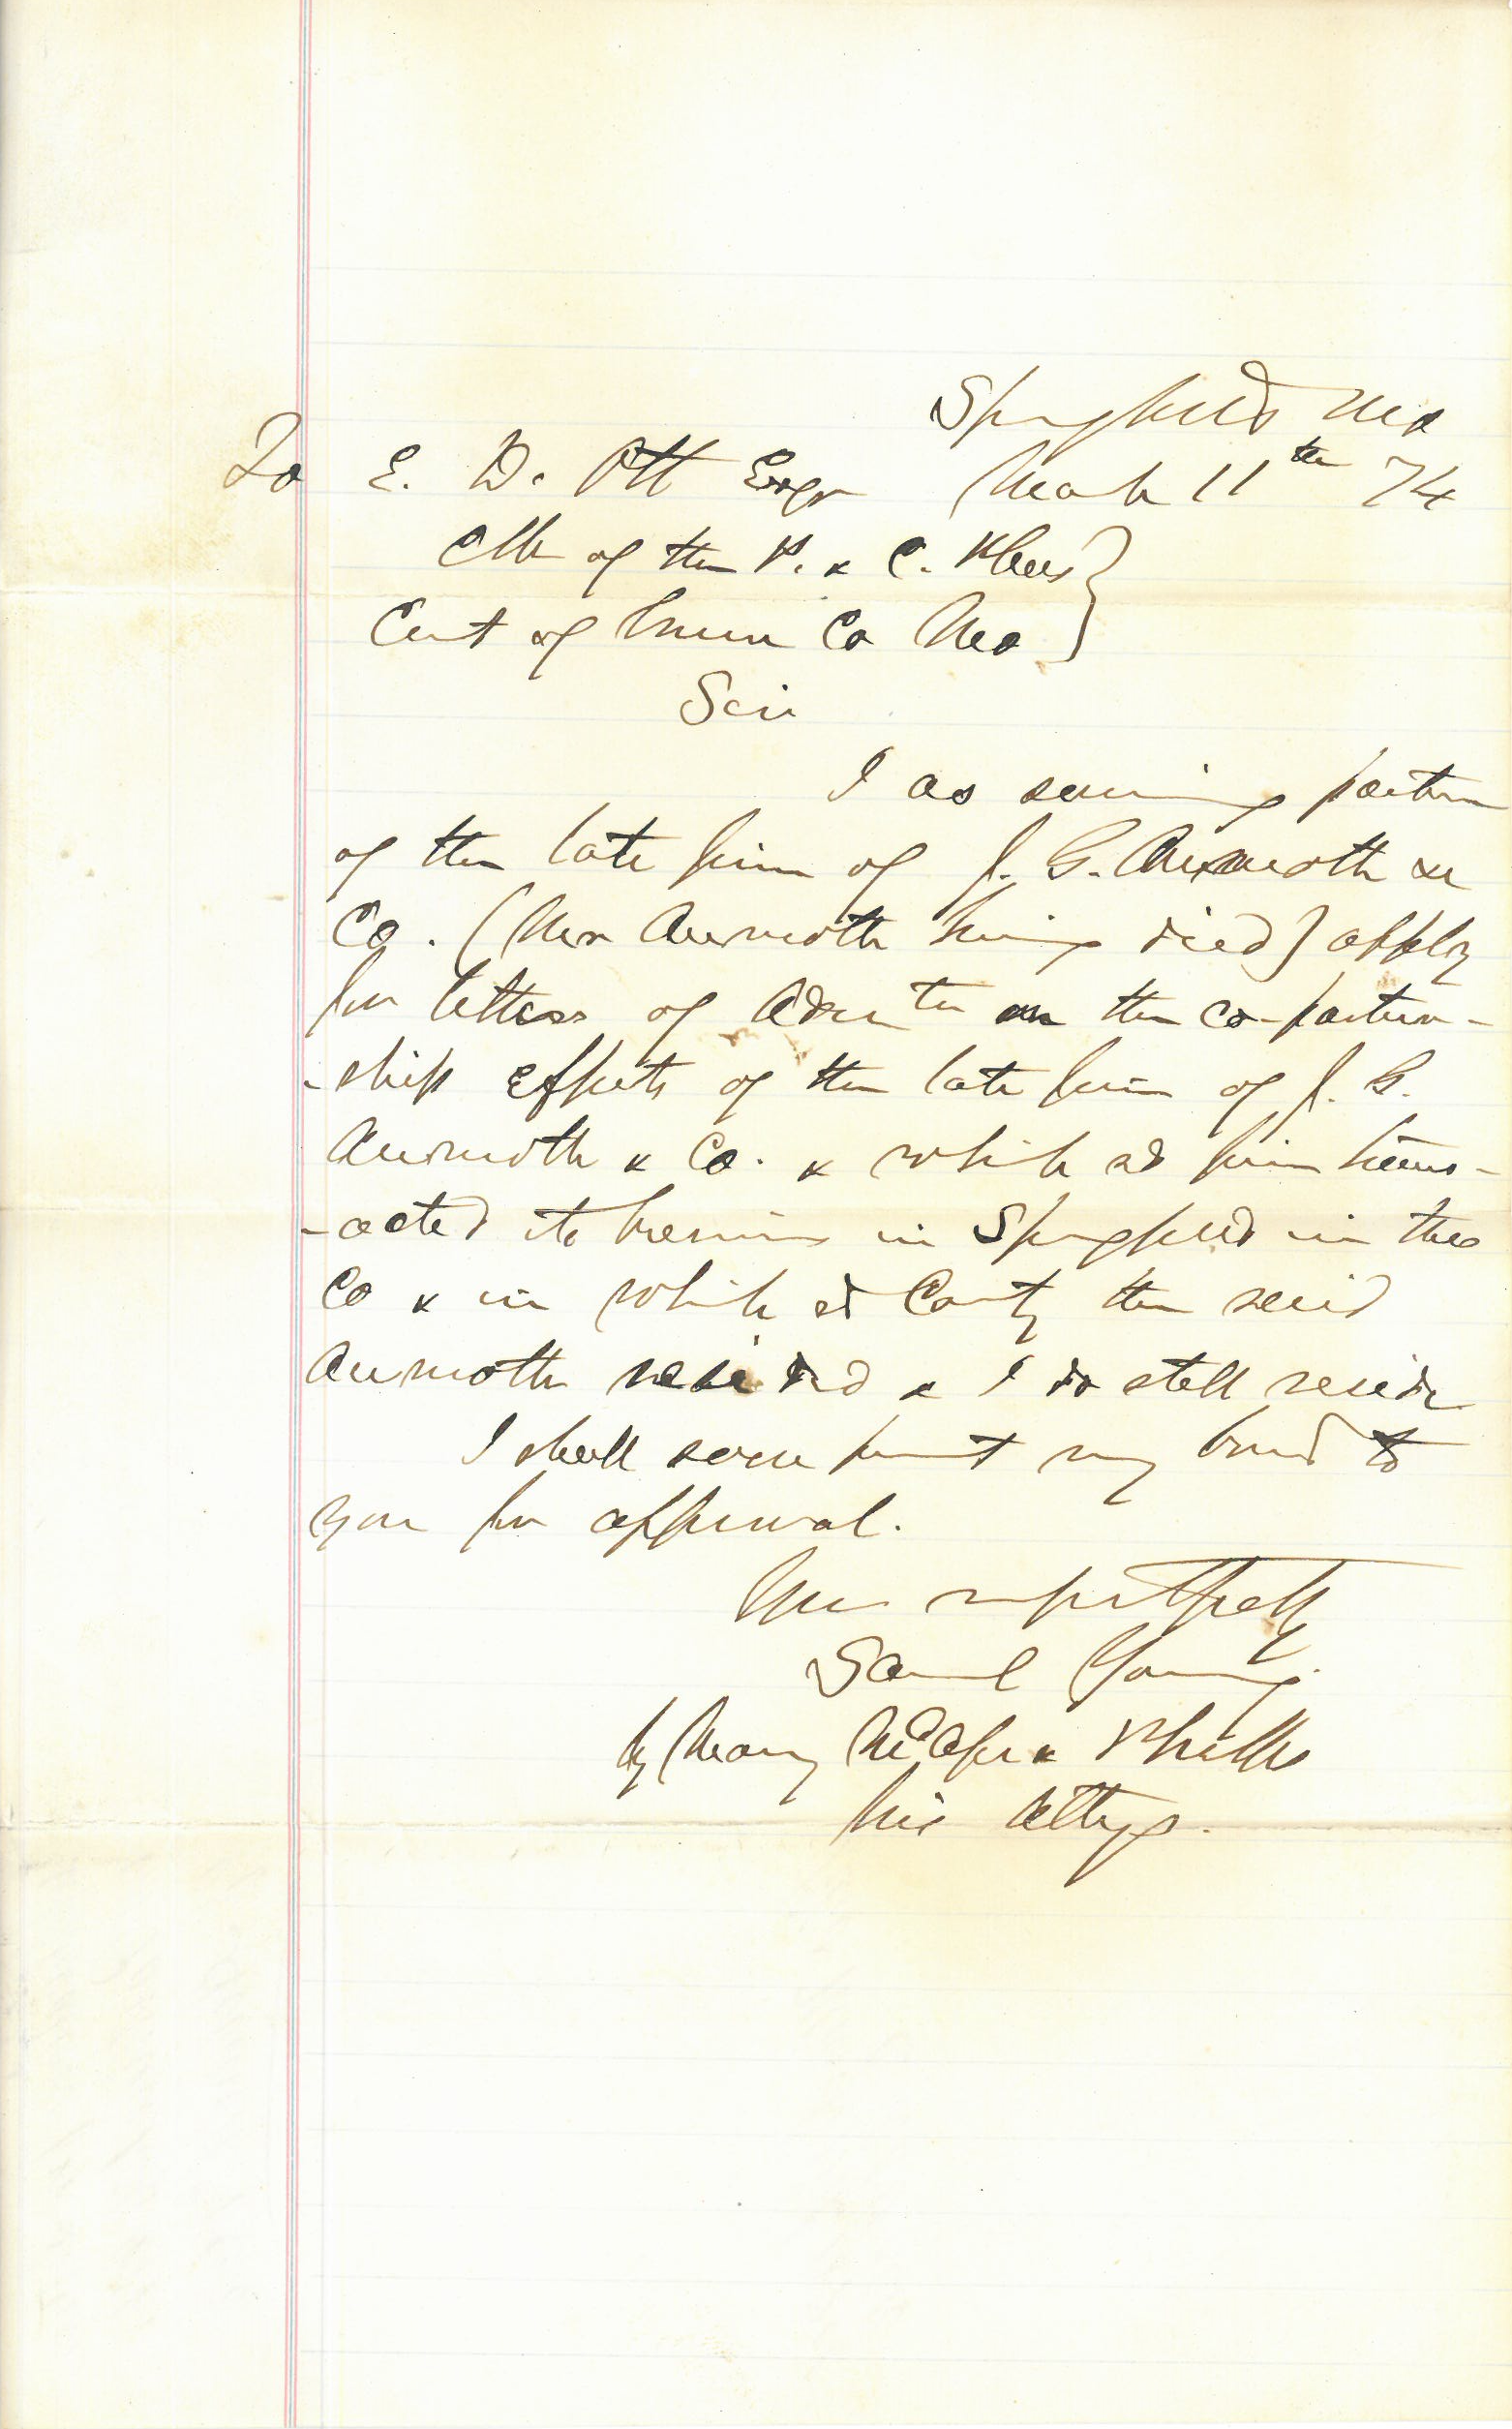 Springfield Mo
To E. D. Ott Esqr March 11th 74
Clk of the P. & C. Pleas
Court of Greene Co Mo
Sir
I as surviving partner
of the late firm of J. G. &
Co. (Mr having died) apply
for letters of Admtn on the co-partner-
-ship effects of the late firm of J. G.
& Co. & which sd firm trans-
-acted its business in Springfield in this
Co & in which sd County the said
resided & I do still reside
I shall soon present my bond to
you for approval.
Yours respectfully
Saml Young
by & Phillips
his Attys.